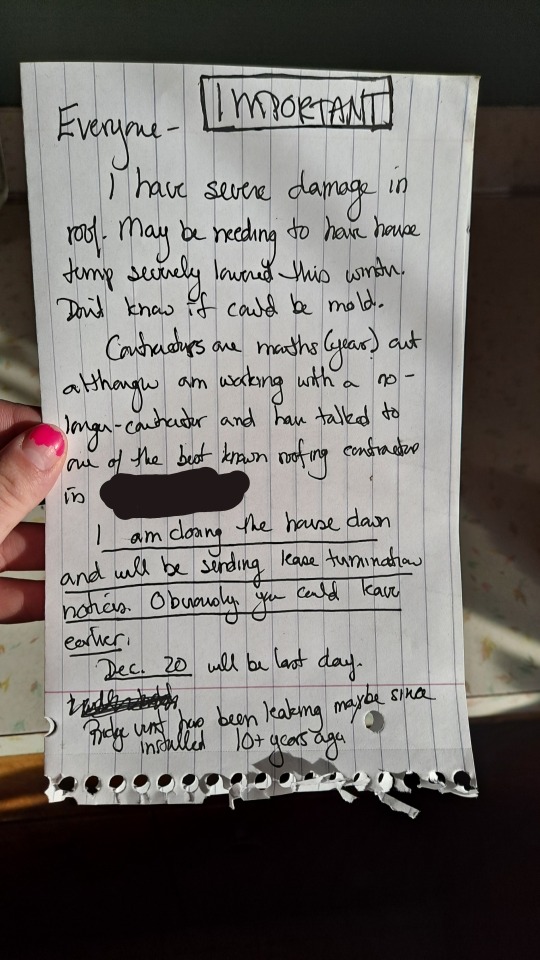 IMPORTANT
Everyone-
I have severe damage in
roof. May be needing to have house
temp severely lowered this winter.
Don't know if could be mold.
Contractors are months (years) out
although am working with a no-
longer-contractor and have talked to
one of the best known roofing contractors
in
I am closing the house down
and will be sending lease termination
notices. Obviously you could leave
earlier.
Dec. 20 will be last day.
Ridge vent has been leaking maybe since
installed 10+ years ago